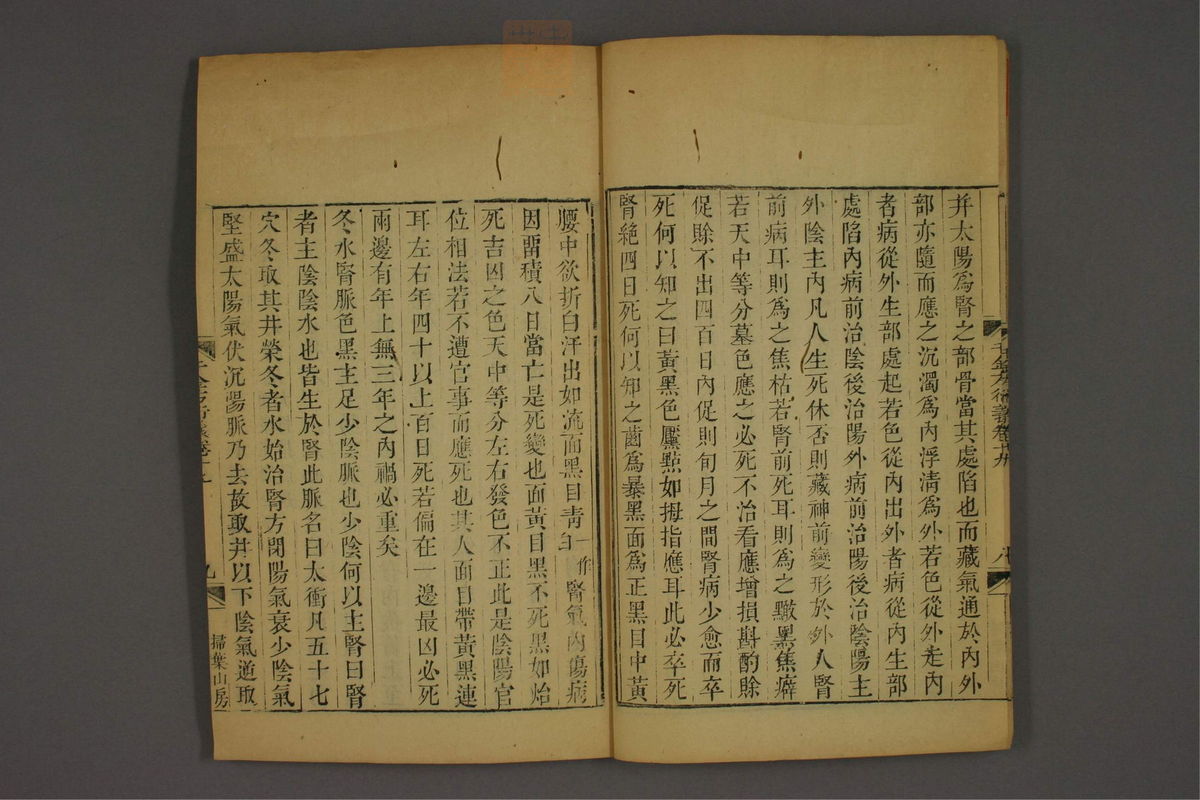 并太陽爲腎之部骨當其處陷也而藏氣通於內外
部亦隨而應之沉濁爲內浮清爲外若色從外走內
者病從外生部處起若色從內出外者病從內生部
處陷內病前治陰後治陽外病前治陽後治陰陽主
外陰主內凡人生死休否則藏神前變形於外人腎
前病耳則爲之焦枯若腎前死耳則爲之黢黑焦癖
若天中等分墓色應之必死不治看應增損斟酌賖
促賖不出四百日內促則旬月之間腎病少愈而卒
死何以知之曰黃黑色黶點如拇指應耳此必卒死
腎絕四日死何以知之齒爲暴黑面爲正黑目中黃
腰中欲折白汗出如流面黑目青一作腎氣內傷病
因留積八日當亡是死變也面黃目黑不死黑如炲
死吉凶之色天中等分左右發色不正此是陰陽官
位相法若不遭官事而應死也其人面目帶黃黑連
耳左右年四十以上百日死若偏在一邊最凶必死
兩邊有年上無三年之內禍必重矣
冬水腎脈色黑主足少陰脈也少陰何以主腎曰腎
者主陰陰水也皆生於腎此脈名曰太衝凡五十七
穴冬取其井榮冬者水始治腎方閉陽氣衰少陰氣
堅盛太陽氣伏沉陽脈乃去故取井以下陰氣逆取
掃葉山房